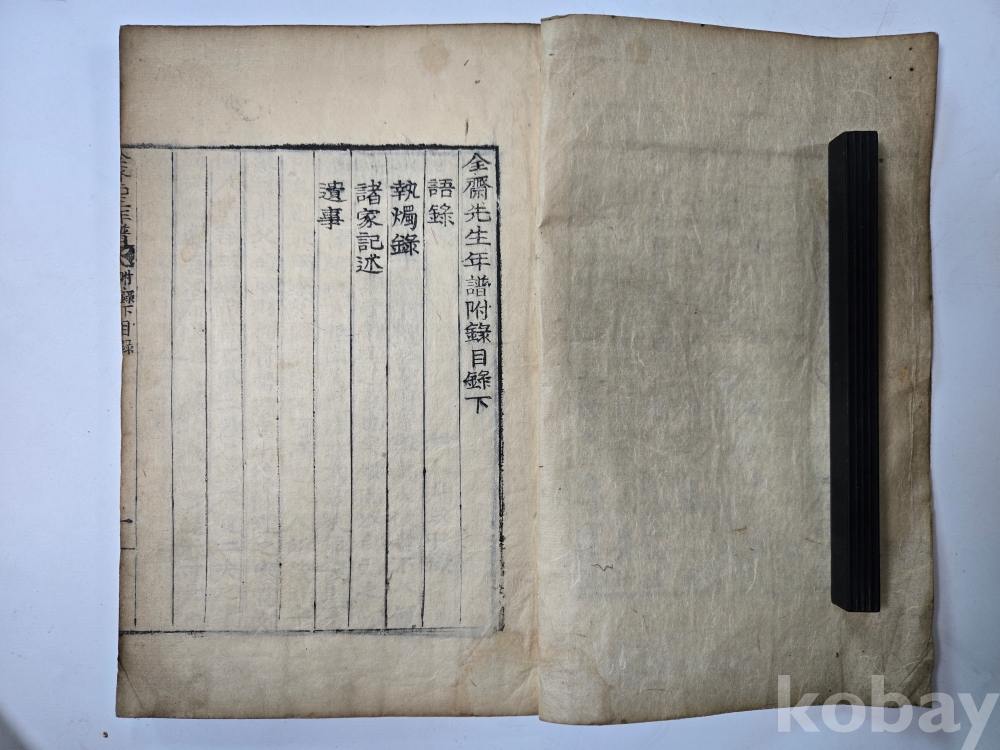 全齋先生年譜附錄目錄下
語錄
執燭錄
諸家記述
遺事
附錄下目錄
kobay